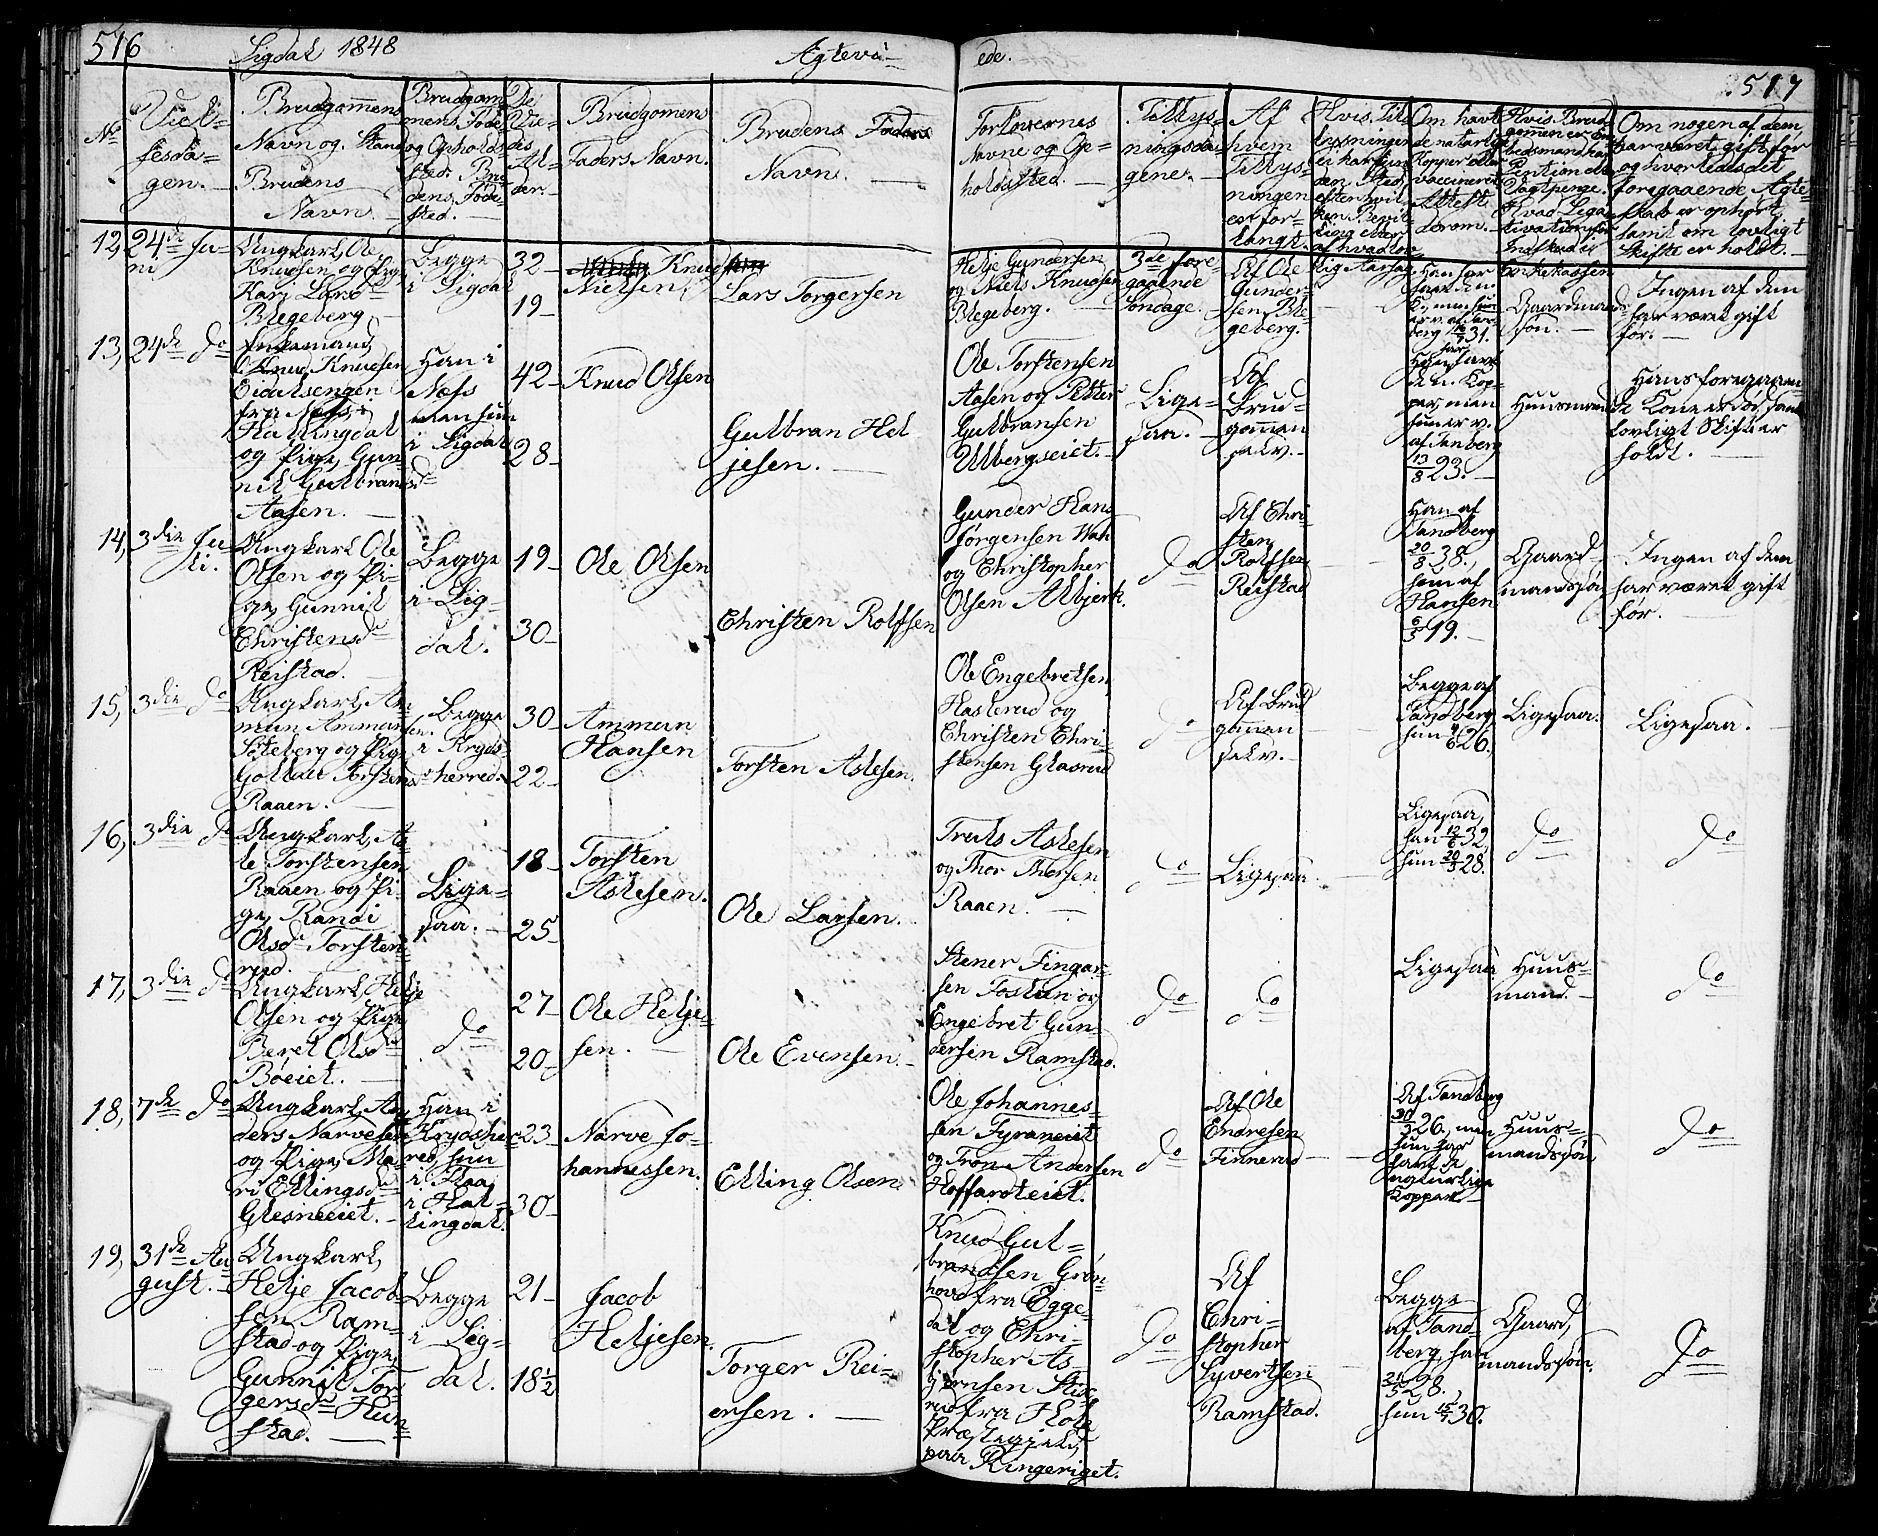 516
Sigdal 1848
Ægtevi-
ede.
517
No
Viel-
sesda-
gen.
Brudgommens
Navn og Stand
Brudens
Navn.
Brudgom-
mens Føde
og Opholds-
sted. Bru-
dens Føde-
sted.
De
Vie-
des
Al-
der.
Brudgomens
Faders Navn.
Brudens Faders
Navn.
Forlovernes
Navne og Op-
holdssted.
Tillys-
ningsda-
gene.
Af
hvem
Tillys-
ningen
er for-
langt.
Om havt
de naturlige
Kopper eller
vaccineret
Attest
derom.
Om nogen af dem
har været gift før
og hvorledes det
foregaaende Ægte-
skab er ophørt,
samt om lovligt
Skifte er holdt.
12, 24de Ju-
ni
Ungkarl Ole
Knudsen og Pige
Kari Larsd
Blegeberg
Begge
i Sigdal
32
19
Knud
Nielsen
Lars Torgersen
Helje Gundersen
og Niels Knudsen
Blegeberg.
3de fore-
gaaende
Søndage.
Af Ole
Gunder-
sen Ble-
geberg.
Gaardmands
søn.
Ingen af dem
har været gift
før.
13, 24de do
Enkemand
Knud Knudsen
Eidalsengen
fra Næss i
Hallingdal
og Pige Gun-
nil Gulbransd
Aasen.
Han i
Næss
men hun
i Sigdal
42
28
Knud Olsen
Gulbran Hel
jesen.
Ole Torstensen
Aasen og Petter
Gulbransen
Ulbergseiet.
Lige-
saa.
Af
Brud-
gommen
selv.
Han havt
de n. Kop-
per, men
hun er v.
af Tanberg
13/8 23.
Huusmand
Hans foregaaen-
de Kone er død, samt
lovligt Skifte er
holdt.
14, 3die Ju-
li.
Ungkarl Ole
Olsen og Pi-
ge Gunnil
Christensd
Reistad.
Begge
i Sig-
dal.
19
30
Ole Olsen
Christen Rolfsen
Gunder Hans
Jørgensen Wah
og Christopher
Olsen Albjerk.
do
Af Chri-
sten
Rolfsen
Reistad
Han af
Tandberg
20/8 38.,
hun af
Hansen
6/5 19.
Gaard-
mandssøn
Ingen af dem
har været gift
før.
15, 3die do
Ungkarl Am-
mun Ammun-
sen
Soteberg og Pige
Golla Torstensd
Raaen.
Begge
i Kryds-
herred.
30
22
Ammun
Hansen
Torsten Aslesen.
Ole Engebretsen
Haslerud og
Christen Chri-
stensen Glasrud
do
Af Brud
gommen
selv.
Begge af
Tandberg
hun 4/6 26.
Ligesaa.
Ligesaa.
16, 3die do
Ungkarl As-
le Torstensen
Raaen og Pi-
ge Randi
Olsd Torsten-
rud.
Lige-
saa.
18
25
Torsten
Aslesen.
Ole Larsen.
Truls Aslesen
og Thor Thorsen
Raaen.
do
Ligesaa.
Ligesaa,
han 12/6 32,
hun 20/3 28.
do
do
17, 3die do
Ungkarl Helje
Olsen og Pige
Beret Olsd
Bøeiet.
do
27
20
Ole Helje-
sen.
Ole Evensen.
Stener Fingar-
sen Foslien og
Engebret Gun-
dersen Ramstad.
do
do
Ligesaa
Huus-
mand.
do
18, 7de do
Ungkarl An-
ders Narvesen
og Pige Ma-
ri Ellingsd
Glesneeiet.
Han i
Krydsher-
red, hun
i Flaa
i Hal-
lingdal.
23
30
Narve Jo-
hannessen.
Elling Olsen
Ole Johannes-
sen Fyraneiet
og Tron Andersen
Hoffardteiet.
do
Af Ole
Endresen
Finnerud
Af Tandberg
20/3 26., men
hun har
havt de
naturlige
Kopper
Huus-
mandssøn
do
19, 31te Au-
gust.
Ungkarl,
Helje Jacob-
sen Ram-
stad og Pige,
Gunnil Tor-
gersd Hun-
stad.
Begge
i Sig-
dal.
21
18 1/2
Jacob
Heljesen.
Torger Rei-
ersen.
Knud Gul-
brandsen Grøn-
hovd fra Egge-
dal og Chri-
stopher As-
bjørnsen
rud fra Hole
Præstegjeld,
paa Ringeriget.
do
Af
Chri-
stopher
Syvertsen
Ramstad.
Begge
af Tand-
berg, han
21/5 28.,
hun 15/7 30.
Gaard,
mandssøn.
do